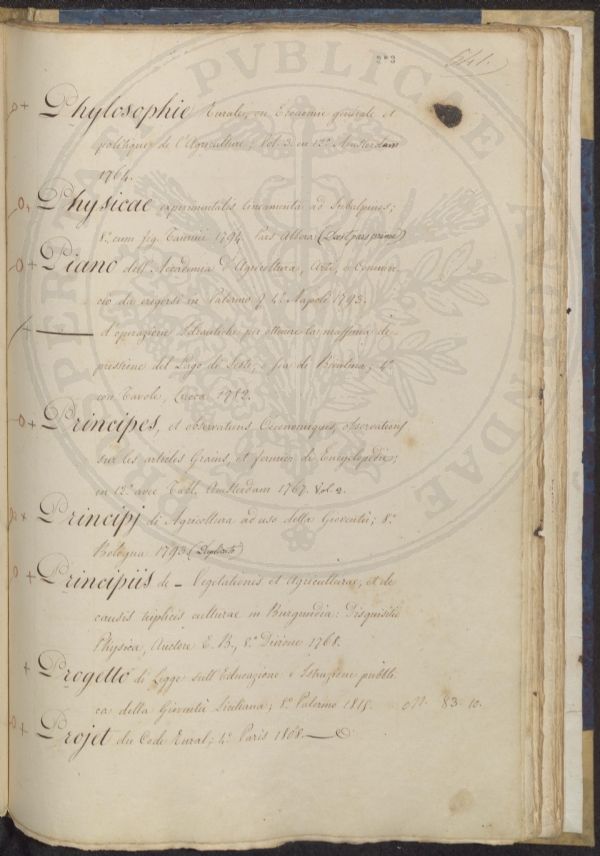 223
541.
Phylosophie Rurale, ou Economie générale et
politique de l'Agriculture; Vol. 3. in 12.º Amsterdam
1764.
Physicae experimentalis lineamenta ad Subalpinos;
8.º cum fig. Taurini 1794. Pars Altera (Deest pars prima)
Piano dell'Accademia d'Agricoltura, Arti, e Commer-
cio da erigersi in Palermo 4.º Napoli 1793.
—— d'operazioni Idrauliche per ottenere la massima de-
pressione del Lago di Sesto, o sia di Bientina; 4.º
con Tavole, Lucca 1782.
Principes, et observations Oeconomiques, observations
sur les articles Grains, et fermier de Encyclopedie;
in 12.º avec Tabl. Amsterdam 1767. Vol. 2.
Principj di Agricoltura ad uso della Gioventù; 8.º
Bologna 1793 (Duplicato)
Principiis de - Vegetationis et Agriculturae, et de
causis triplicis culturae in Burgundia: Disquisitio
Physica, Auctore E. B., 8.º Divione 1768.
Progetto di Legge sull'Educazione e Istruzione pubbli-
ca della Gioventù Siciliana; 8.º Palermo 1815. 83. 10.
Projet du Code Rural; 4.º Paris 1808.
PRO PERPETUA PUBLICAE